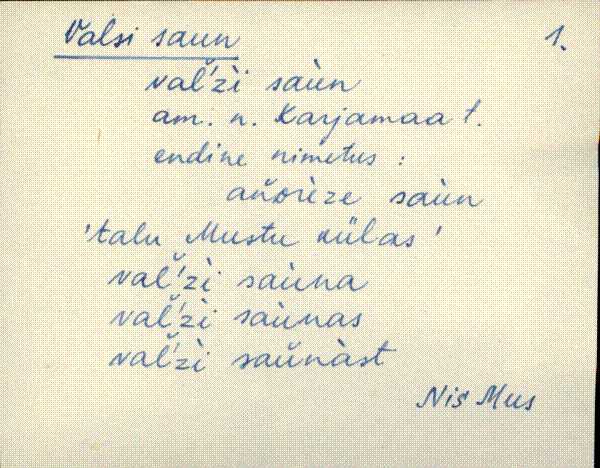 Valsi saun 1.
val̆'zì saùn
am. n. Karjamaa t.
endine nimetus :
saùn
'talu Mustu külas'
val̆'zì saùna
val̆'zì saùnas
val̆'zì saŭnàst
Nis Mus